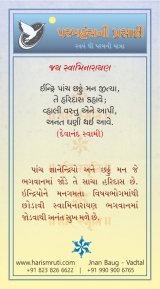 પરમહંસની પ્રસાદી
સ્વયં થી સ્વયંની યાત્રા
જય સ્વામિનારાયણ
ઈન્દ્રિ પાંચ છઠ્ઠું મન જીત્યા,
તે હરિદાસ કહાવે;
વ્હાલી વસ્તુ એને આપી,
અનંત ઘણી થઈ આવે.
(દેવાનંદ સ્વામી)
પાંચ જ્ઞાનેન્દ્રિયો અને છઠ્ઠું મન જે
ભગવાનમાં જોડે તે સાચા હરિદાસ છે.
ઇન્દ્રિયોને મનગમતા વિષયભોગમાંથી
છોડાવી સ્વામિનારાયણ ભગવાનમાં
જોડવાથી અનંત સુખ મળે છે.
www.harismruti.com Jnan Baug - Vadtal
+91 823 626 6622 | +91 990 900 6765